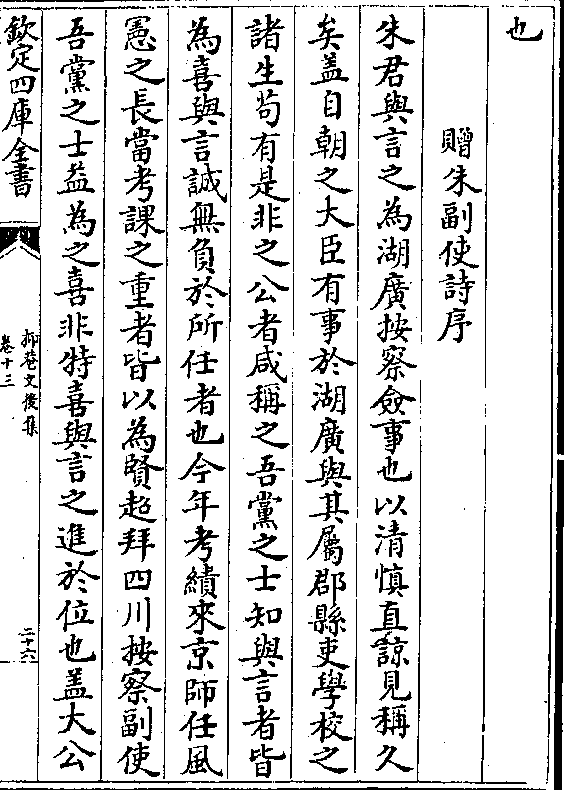 也
贈朱副使詩序
朱君與言之為湖廣按察僉事也以清慎直諒見稱久
矣盖自朝之大臣有事於湖廣與其屬郡縣吏學校之
諸生茍有是非之公者咸稱之吾黨之士知與言者皆
為喜與言誠無負於所任者也今年考績來京師任風
憲之長當考課之重者皆以為賢超拜四川按察副使
吾黨之士益為之喜非特喜與言之進於位也盖大公
欽定四庫全書
抑菴文後集
卷十三
二十六